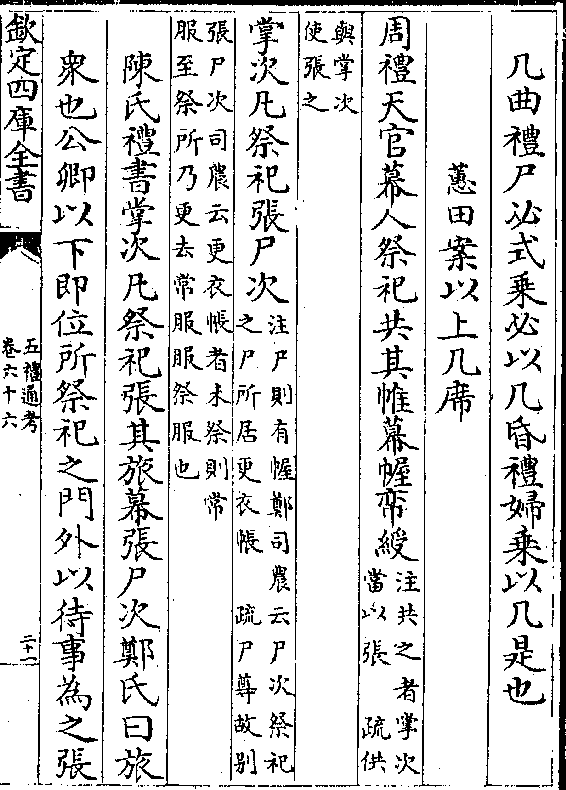 几曲禮尸必式乘必以几昏禮婦乘以几是也
蕙田案以上几席
周禮天官幕人祭祀共其帷幕幄帟綬
注共之者掌次
當以張　疏供
與掌次
使張之
掌次凡祭祀張尸次
注尸則有幄鄭司農云尸次祭祀
之尸所居更衣帳　疏尸尊故别
張尸次司農云更衣帳者未祭則常
服至祭所乃更去常服服祭服也
陳氏禮書掌次凡祭祀張其旅幕張尸次鄭氏曰旅
衆也公卿以下即位所祭祀之門外以待事為之張
欽定四庫全書
五禮通考
卷六十六
二十一